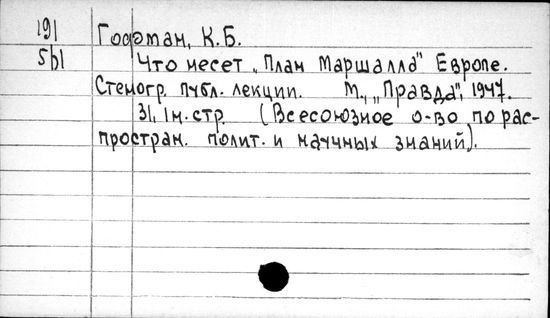 191
561
Гофман, К.Б.
Что несет „План Маршалла" Европе.
Стеногр. публ. лекции. М., „Правда", 1947.
31, 1н. стр. (Всесоюзное о-во по рас-
простран. полит. и научных знаний).